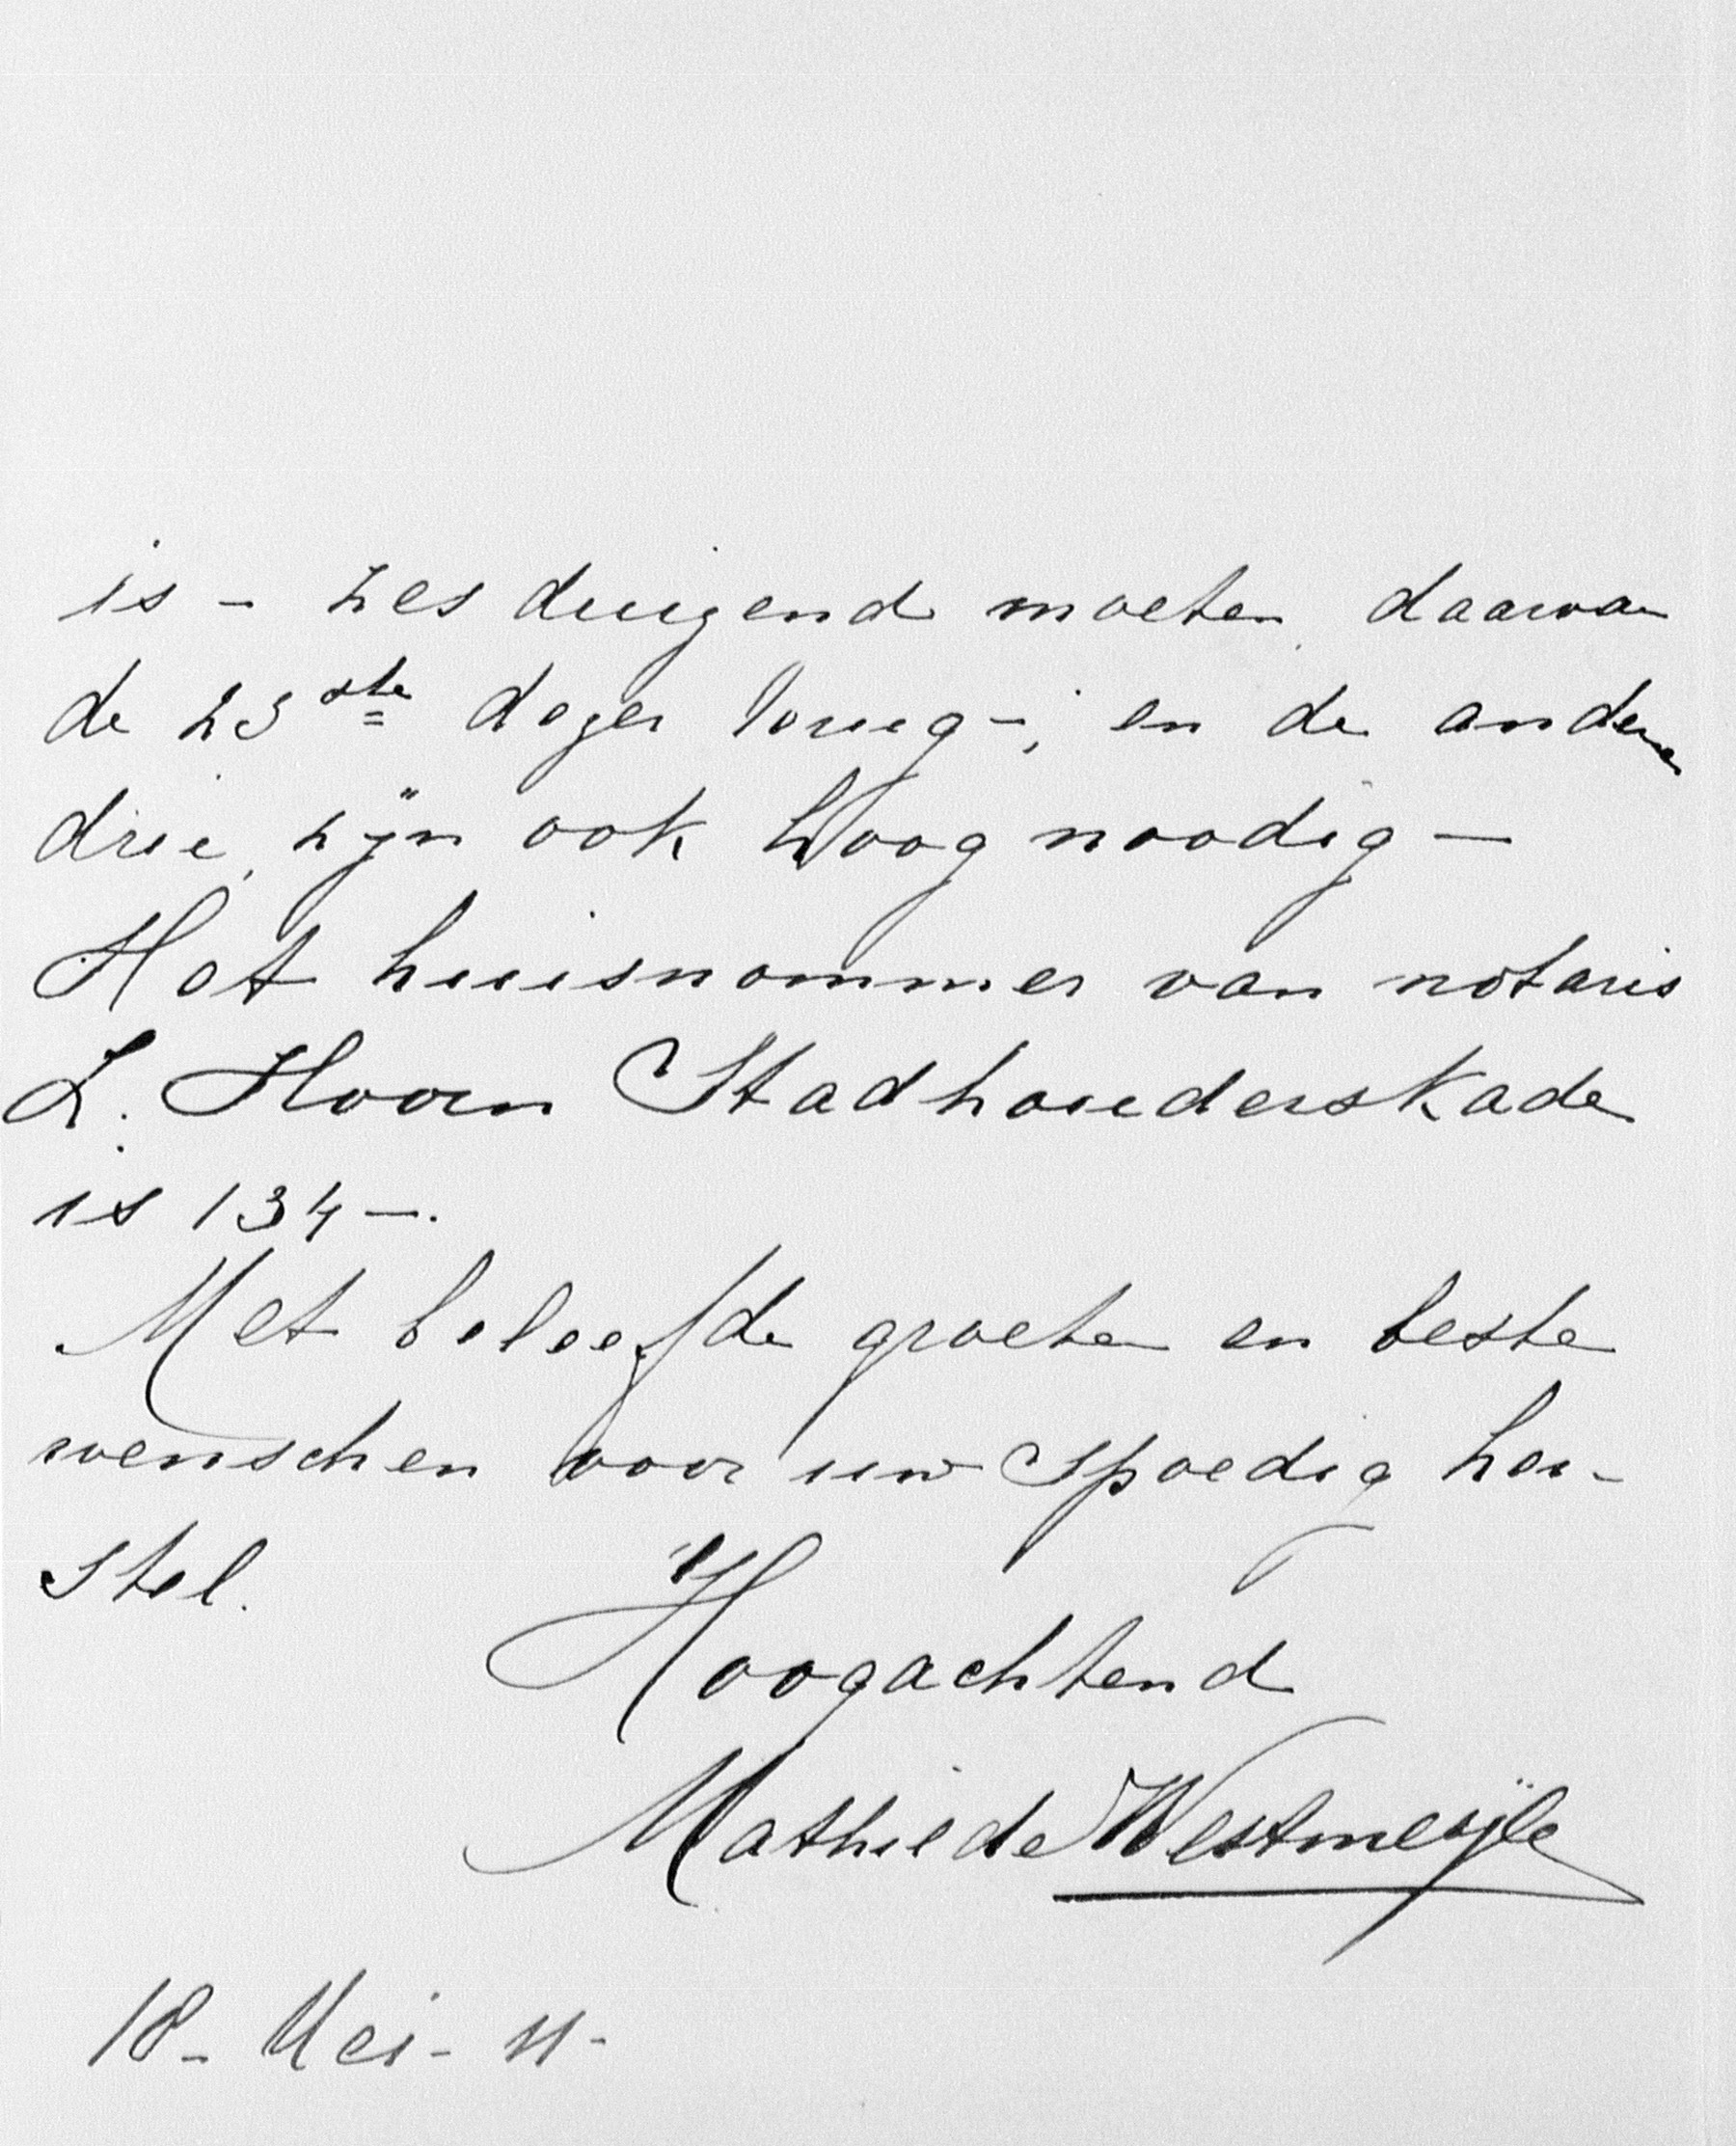 is - zes duizend moeten daarvan
de 23ste dezer terug -, en de andere
drie, zijn ook hoog noodig —
Het huisnommer van notaris
L. Hoorn Stadhouderskade
is 134 —.
Met beleefde groeten en beste
wenschen voor uw spoedig her-
stel.
Hoogachtend
Mathilde Westmeijle
18 - Mei - 11 -